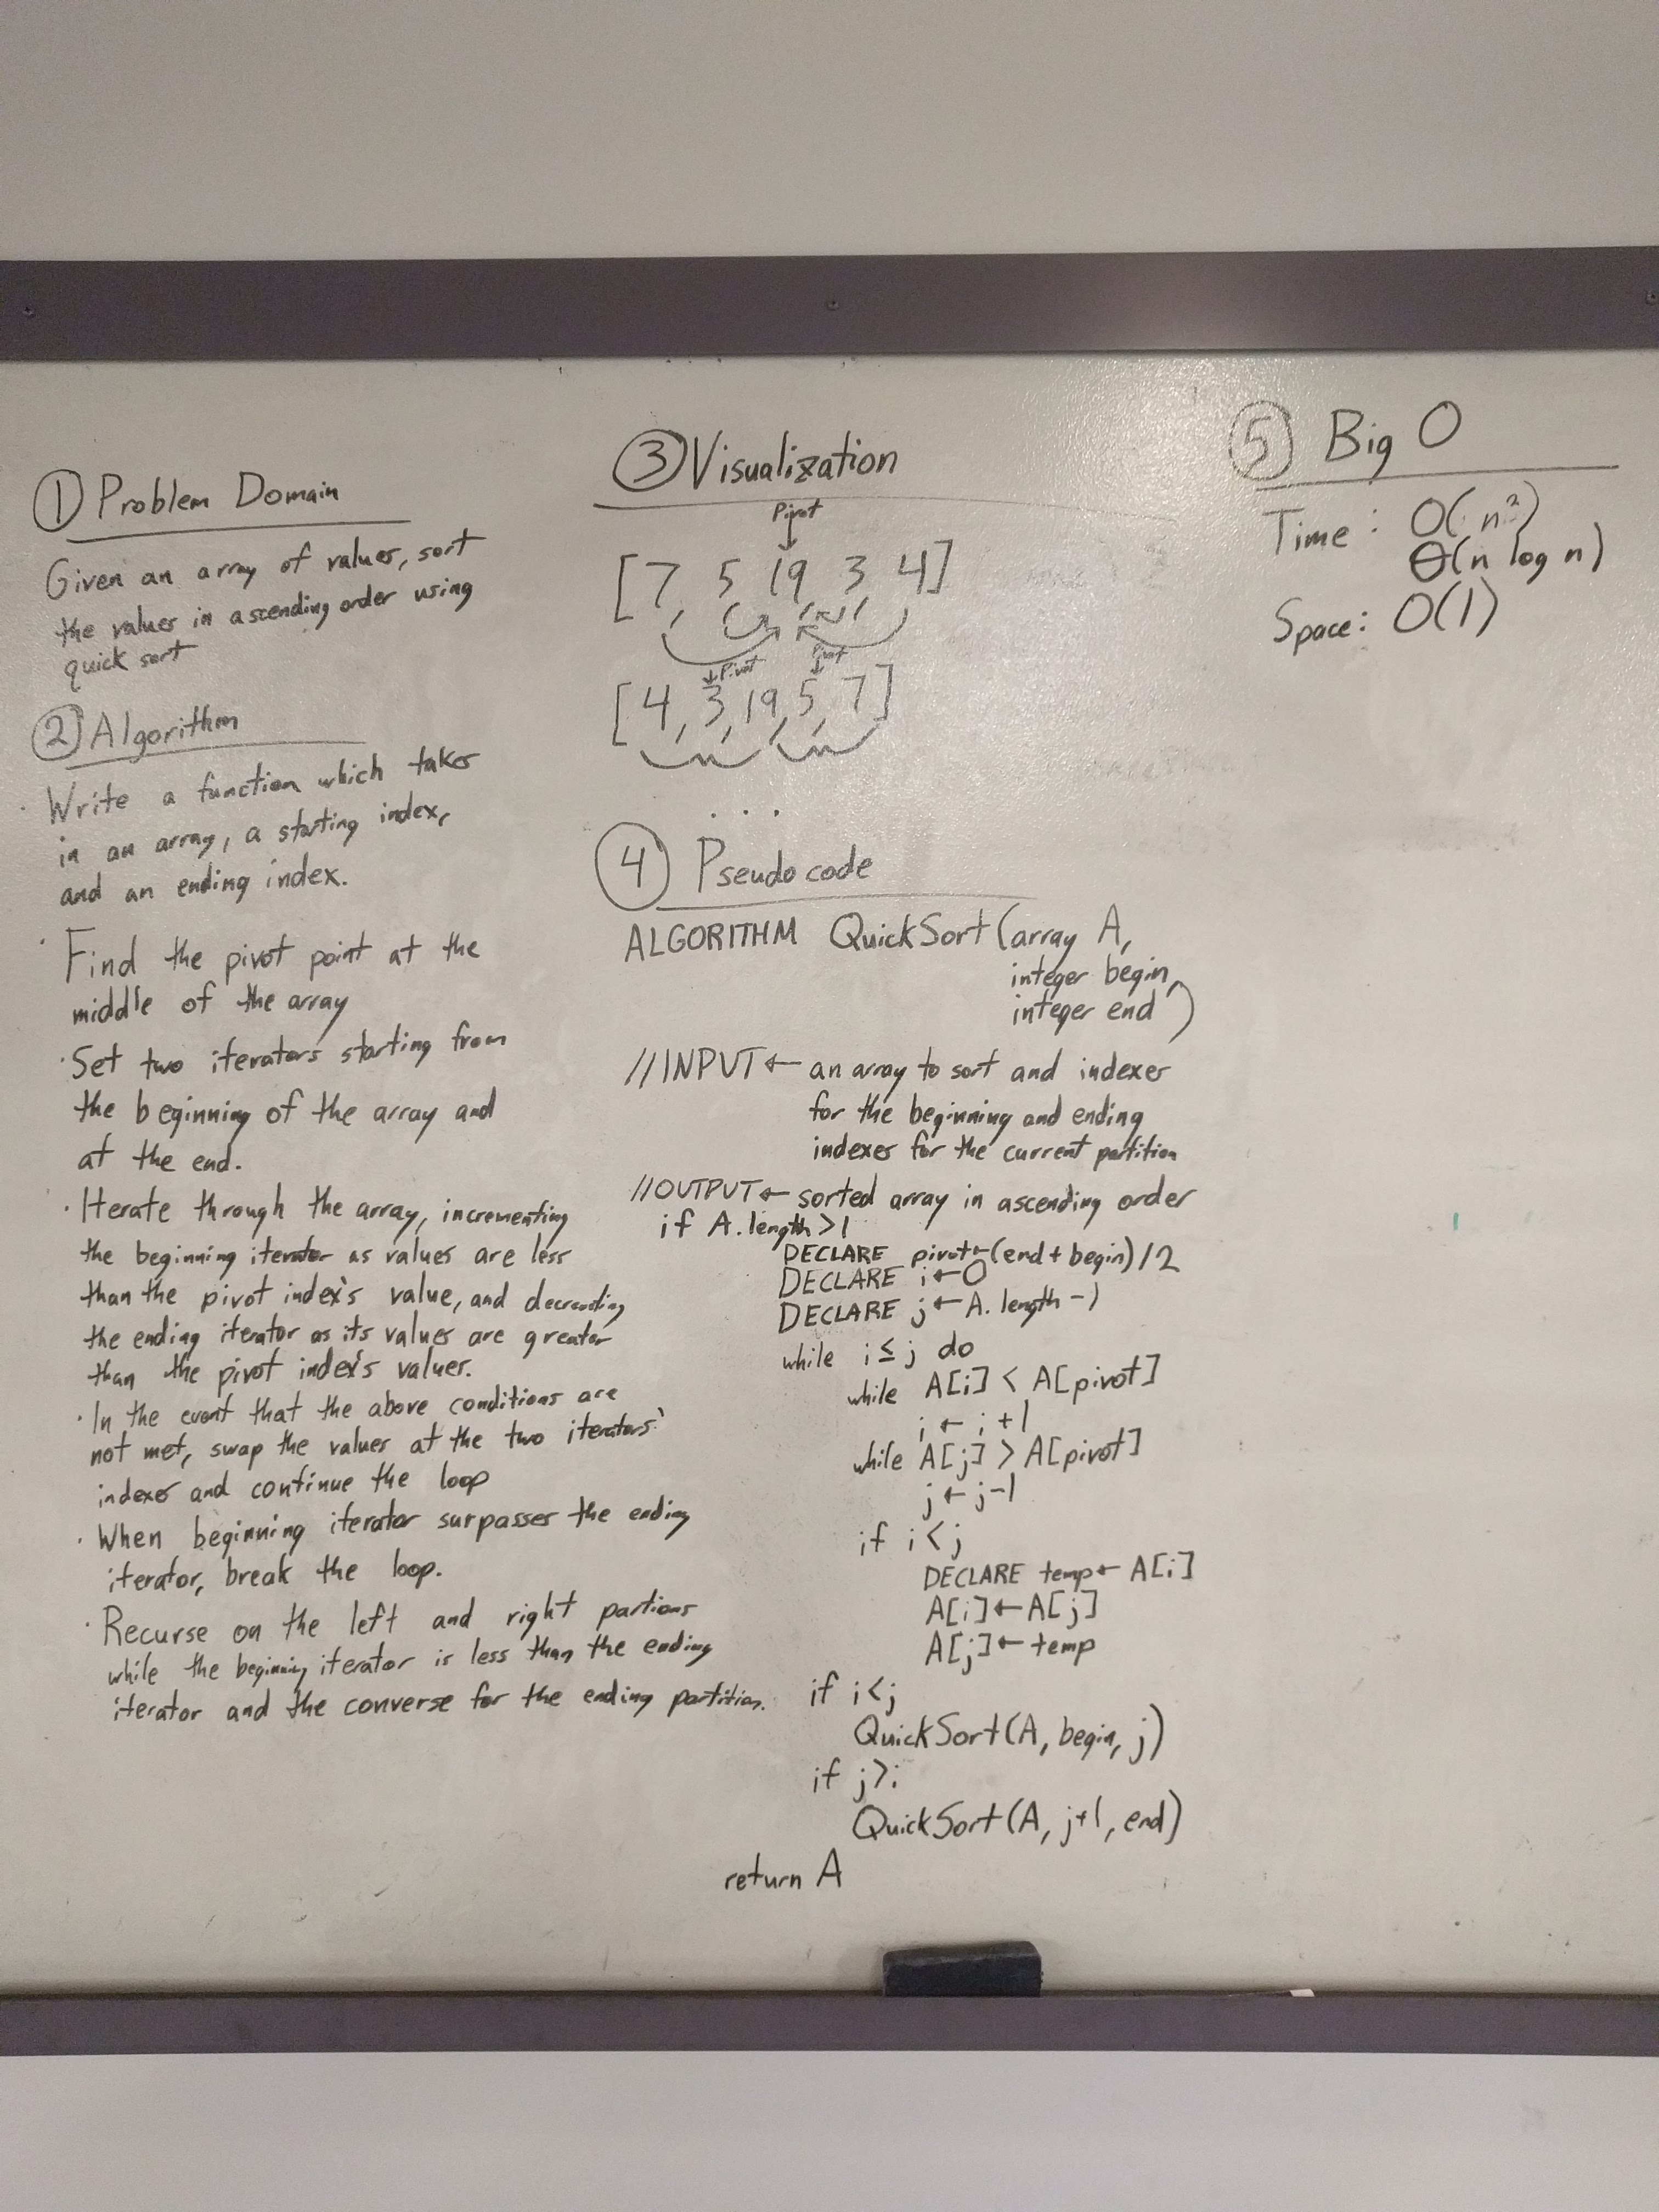 ① Problem Domain
Given an array of values, sort
the values in ascending order using
quick sort
② Algorithm
· Write a function which takes
in an array, a starting index,
and an ending index.
· Find the pivot point at the
middle of the array
· Set two iterators starting from
the beginning of the array and
at the end.
· Iterate through the array, incrementing
the beginning iterator as values are less
than the pivot index's value, and decrementing
the ending iterator as its values are greater
than the pivot index's values.
· In the event that the above conditions are
not met, swap the values at the two iterators'
indexes and continue the loop
· When beginning iterator surpasses the ending
iterator, break the loop.
· Recurse on the left and right partions
while the beginning iterator is less than the ending
iterator and the converse for the ending partition.
③ Visualization
Pivot
[7, 5 19 3, 4]
Pivot Pivot
[4, 3, 19, 5, 7]
...
④ Pseudo code
ALGORITHM QuickSort(array A,
integer begin,
integer end)
//INPUT ← an array to sort and indexes
for the beginning and ending
indexes for the current partition
//OUTPUT ← sorted array in ascending order
if A.length > 1
DECLARE pivot ← (end + begin)/2
DECLARE i ← 0
DECLARE j ← A.length - 1
while i ≤ j do
while A[i] < A[pivot]
i ← i + 1
while A[j] > A[pivot]
j ← j - 1
if i < j
DECLARE temp ← A[i]
A[i] ← A[j]
A[j] ← temp
if i < j
QuickSort(A, begin, j)
if j > i
QuickSort(A, j+1, end)
return A
⑤ Big O
Time: O(n²)
Θ(n log n)
Space: O(1)